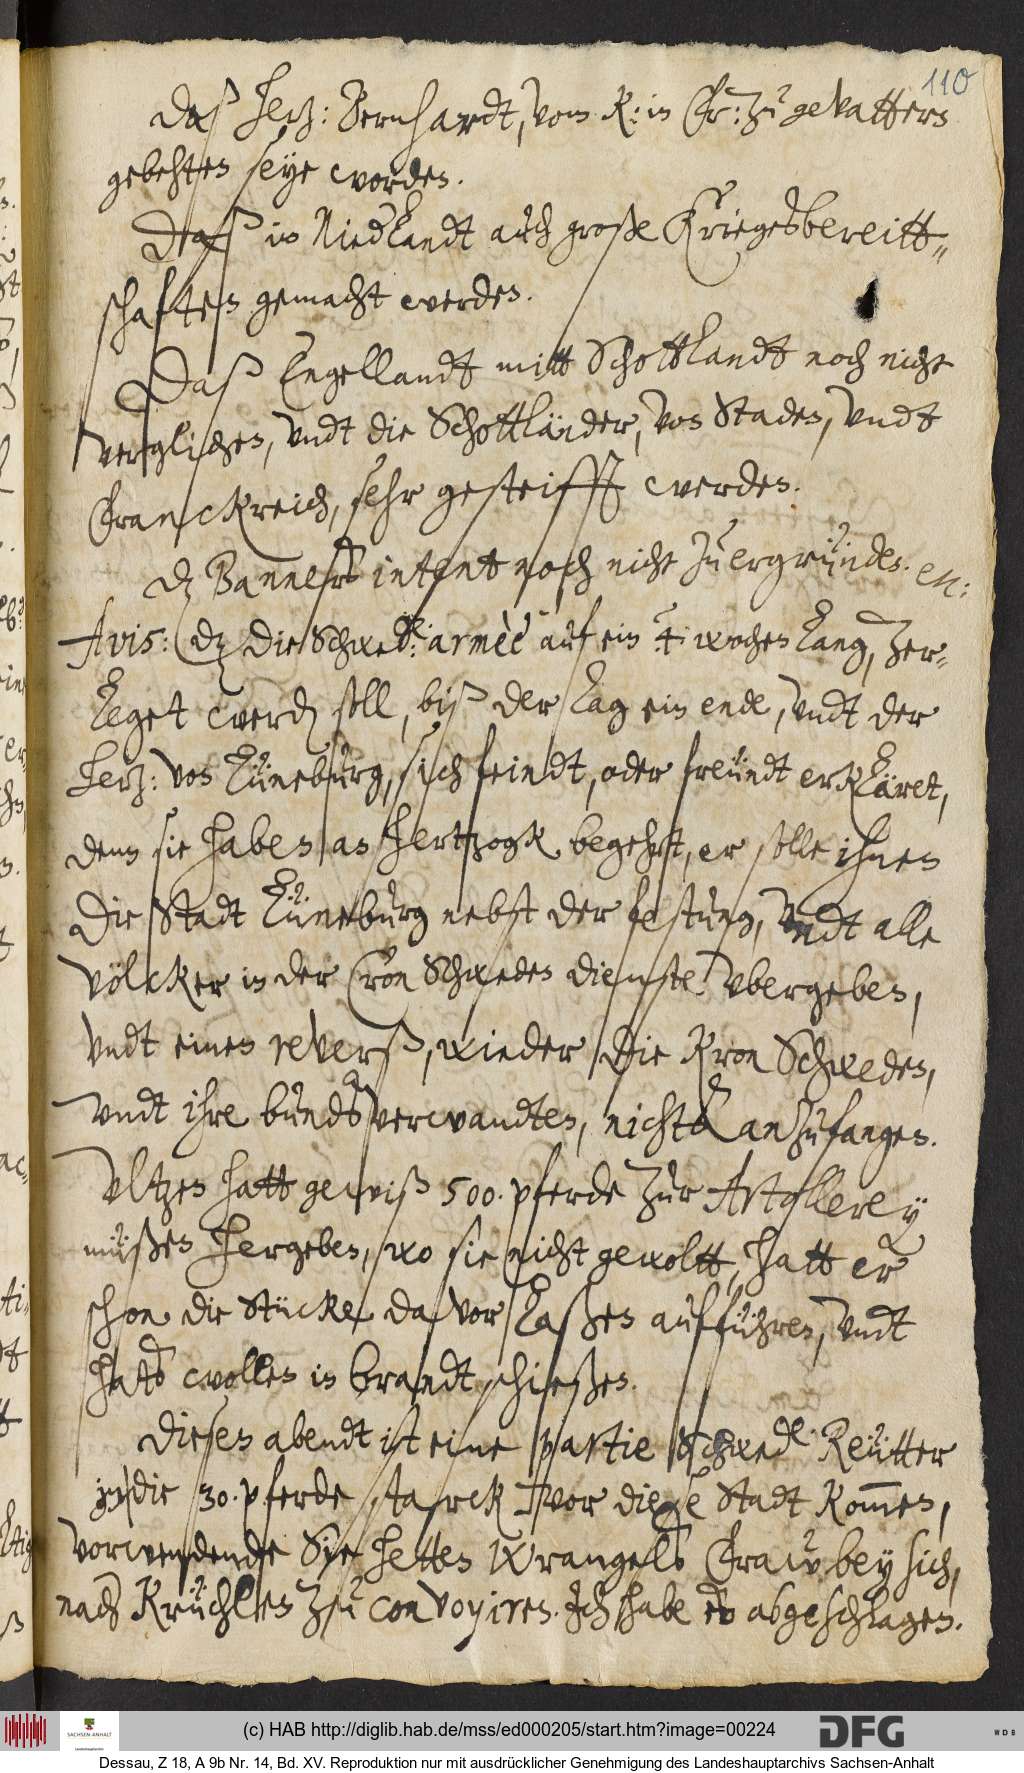 110
Daß Hertz: Bernhardt, vom K: in Fr: zu gevattern
gebehten seye worden.
Daß in Niederlandt auch große Kriegesbereitt-
schafften gemacht werden.
Daß Engellandt mitt Schottlandt noch nicht
verglichen, vndt die Schottländer, von Staden, vndt
Franckreich, sehr gesteifft werden.
dz Banners intent noch nicht zu ergründen. en:
Avis: dz die Schwed: armèè auf ein 4: wochen lang, zer-
leget werden soll, biß der Tag ein ende, vndt der
Hertz: von Lüneburg, sich feindt, oder freundt erkläret,
denn sie haben an Hertzogk begehrt, er solle ihnen
die Stadt Lüneburg nebst der festung, vndt alle
völcker in der Cron Schweden dienste vbergeben,
vndt einen reverß, wieder die Kron Schweden,
vndt ihre bundsverwandten, nichts anzufangen.
Vltzen hatt gewiß 500. pferde zur Artollerey
müßen hergeben, wo sie nicht gewoltt, hatt er
schon die Stücke davor laßen aufführen, vndt
hats wollen in brandt schießen.
Diesen abendt ist eine partie Schwed. Reütter
in die 30. pferde starck vor diese Stadt kommen,
vorwendende Sie hetten Wrangels Fraw bey sich,
nach Krüchlen zu convoyiren. Ich habe es abgeschlagen.
(c) HAB http://diglib.hab.de/mss/ed000205/start.htm?image=00224
SACHSEN-ANHALT
Landeshauptarchiv
DFG
WDB
Dessau, Z 18, A 9b Nr. 14, Bd. XV. Reproduktion nur mit ausdrücklicher Genehmigung des Landeshauptarchivs Sachsen-Anhalt